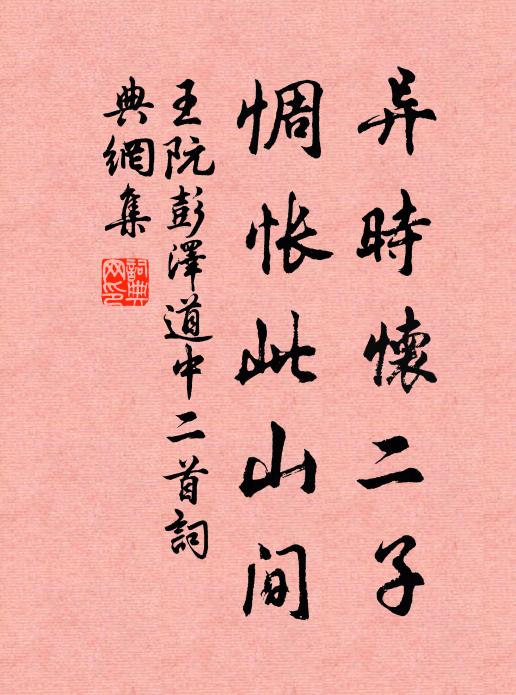 异時懷二子
惆怅此山间
王阮彭澤道中二首詞
典網集
詞典
网印